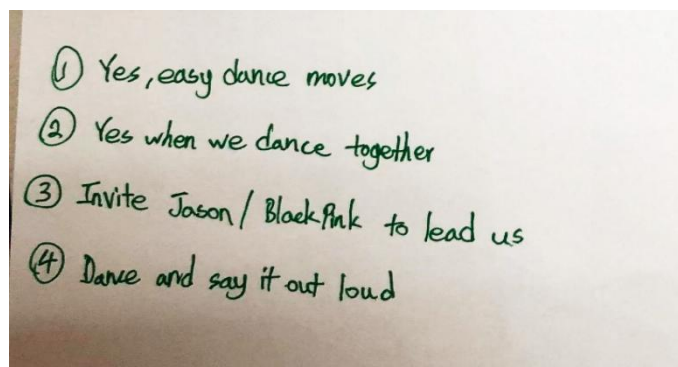 ① Yes, easy dance moves
② Yes when we dance together
③ Invite Jason / BlackPink to lead us
④ Dance and say it out loud